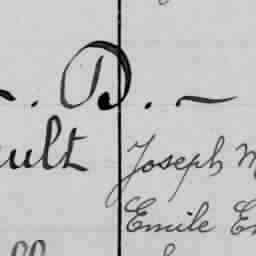 . D. ~
ult Joseph M
Emile E
ll